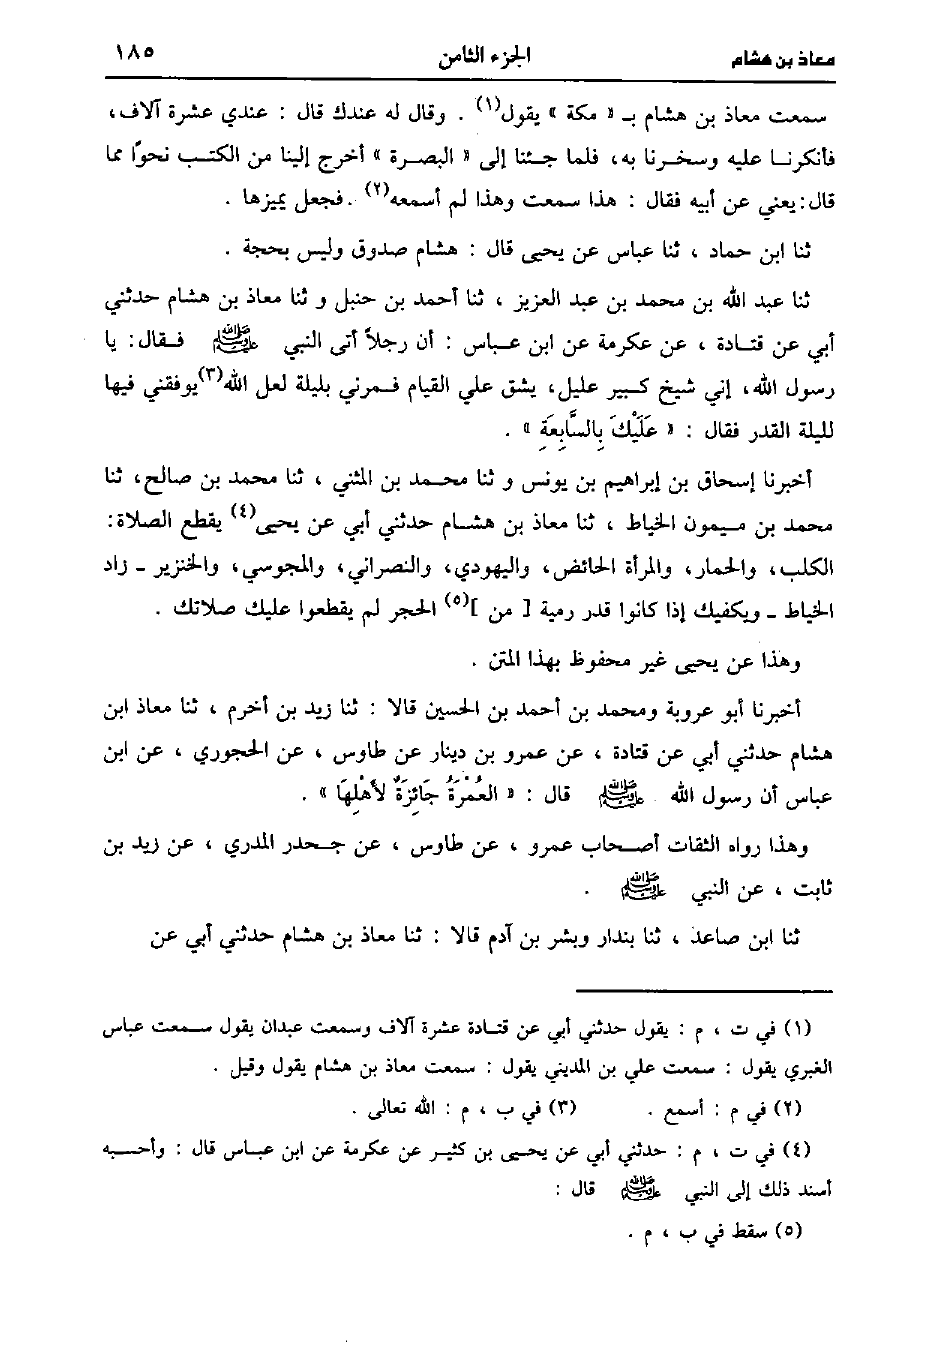 معاذ بن هشام الجزء الثامن ١٨٥
سمعت معاذ بن هشام بـ « مكة » يقول(١) . وقال له عندك قال : عندي عشرة آلاف،
فأنكرنا عليه وسخرنا به، فلما جئنا إلى « البصرة » أخرج إلينا من الكتب نحوًا مما
قال: يعني عن أبيه فقال : هذا سمعت وهذا لم أسمعه(٢) . فجعل يميزها .
ثنا ابن حماد ، ثنا عباس عن يحيى قال : هشام صدوق وليس بحجة .
ثنا عبد الله بن محمد بن عبد العزيز ، ثنا أحمد بن حنبل و ثنا معاذ بن هشام حدثني
أبي عن قتادة ، عن عكرمة عن ابن عباس : أن رجلاً أتى النبي ﷺ فقال: يا
رسول الله، إني شيخ كبير عليل، يشق علي القيام فمرني بليلة لعل الله(٣) يوفقني فيها
لليلة القدر فقال : « عَلَيْكَ بِالسَّابِعَةِ » .
أخبرنا إسحاق بن إبراهيم بن يونس و ثنا محمد بن المثني ، ثنا محمد بن صالح، ثنا
محمد بن ميمون الخياط ، ثنا معاذ بن هشام حدثني أبي عن يحيى(٤) يقطع الصلاة:
الكلب، والحمار، والمرأة الحائض، واليهودي، والنصراني، والمجوسي، والخنزير ـ زاد
الخياط ـ ويكفيك إذا كانوا قدر رمية [ من ](٥) الحجر لم يقطعوا عليك صلاتك .
وهذا عن يحيى غير محفوظ بهذا المتن .
أخبرنا أبو عروبة ومحمد بن أحمد بن الحسين قالا : ثنا زيد بن أخرم ، ثنا معاذ ابن
هشام حدثني أبي عن قتادة ، عن عمرو بن دينار عن طاوس ، عن الحجوري ، عن ابن
عباس أن رسول الله ﷺ قال : « العُمْرَةُ جَائِزَةٌ لأَهْلِهَا » .
وهذا رواه الثقات أصحاب عمرو ، عن طاوس ، عن جحدر المدري ، عن زيد بن
ثابت ، عن النبي ﷺ .
ثنا ابن صاعد ، ثنا بندار وبشر بن آدم قالا : ثنا معاذ بن هشام حدثني أبي عن
(١) في ت ، م : يقول حدثني أبي عن قتادة عشرة آلاف وسمعت عبدان يقول سمعت عباس
الغبري يقول : سمعت علي بن المديني يقول : سمعت معاذ بن هشام يقول وقيل .
(٢) في م : أسمع . (٣) في ب ، م : الله تعالى .
(٤) في ت ، م : حدثني أبي عن يحيى بن كثير عن عكرمة عن ابن عباس قال : وأحسبه
أسند ذلك إلى النبي ﷺ قال :
(٥) سقط في ب ، م .